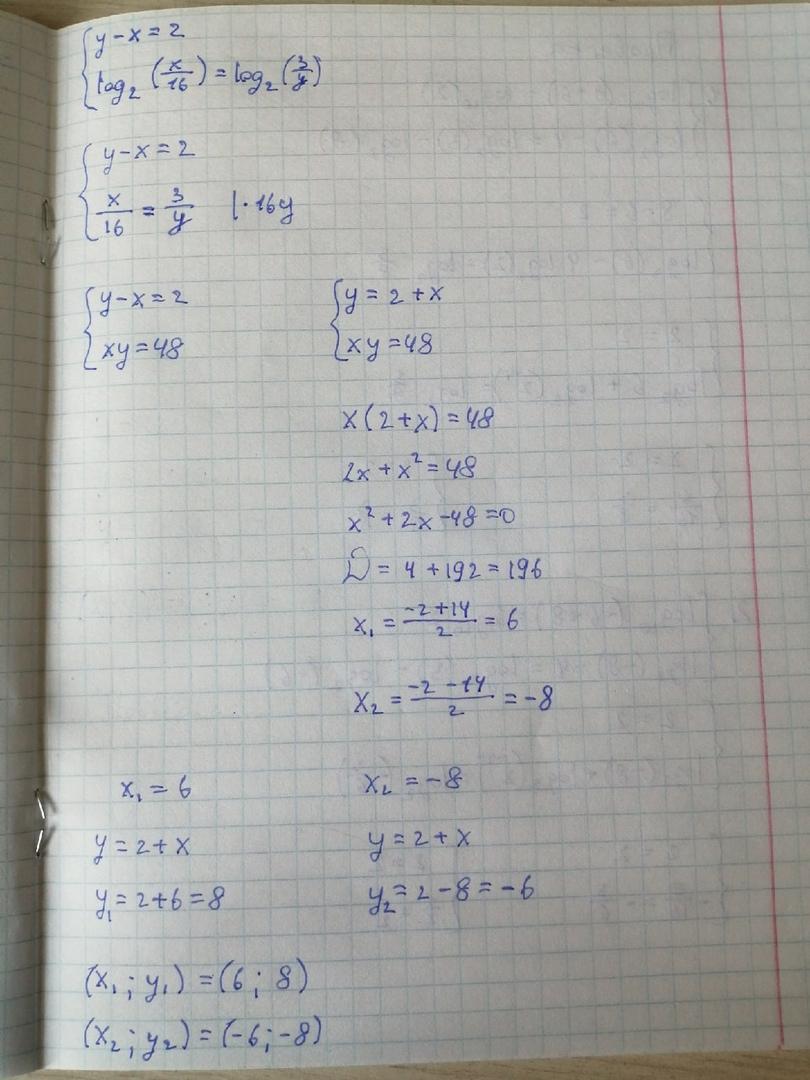 y-x=2
log₂(x/16)=log₂(3/y)
y-x=2
x/16=3/y |·16y
y-x=2 y=2+x
xy=48 xy=48
x(2+x)=48
2x+x²=48
x²+2x-48=0
D=4+192=196
x₁=(-2+14)/2=6
x₂=(-2-14)/2=-8
x₁=6 x₂=-8
y=2+x y=2+x
y₁=2+6=8 y₂=2-8=-6
(x₁;y₁)=(6;8)
(x₂;y₂)=(-6;-8)